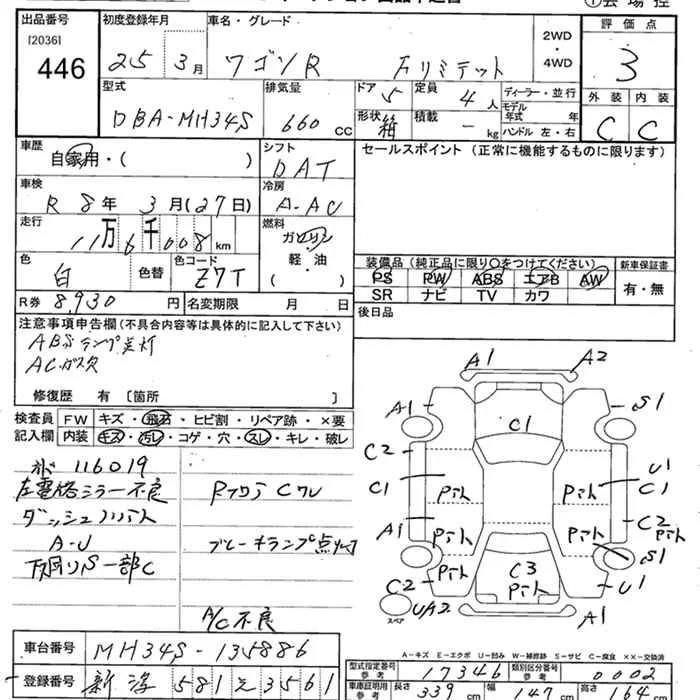 出品番号 [2036] 446
初度登録年月 25年 3月
車名・グレード ワゴンR Fリミテット
2WD・4WD
評価点 3
型式 DBA-MH34S
排気量 660 CC
ドア 5
定員 4人
形状 箱
積載 - kg
ディーラー・並行
モデル年式 年
ハンドル 左・右
外装 内装
C C
車歴 自家用・( )
シフト DAT
セールスポイント (正常に機能するものに限ります)
車検 R 8年 3月(27日)
冷房 A-AC
走行 11万6千008km
燃料 ガソリン・軽・油 ( )
色 白 色替
色コード Z7T
装備品 (純正品に限り〇をつけてください)
新車保証書
PS PW ABS エアB AW
SR ナビ TV カワ
有・無
R券 8,930円
名変期限 月 日
後日品
注意事項申告欄 (不具合内容等は具体的に記入して下さい)
ABSランプ点灯
ACガス欠
修復歴 有 [箇所 ]
検査員記入欄
FW キズ・飛石・ヒビ割・リペア跡・×要
内装 キズ・汚レ・コゲ・穴・スレ・キレ・破レ
116019
左電格ミラー不良
A-U
下廻りS一部C
ブレーキランプ点灯
A/C不良
A1 A2
A1 C1 S1
C2 C1 U1 C1
A1 C2
S1
C2 C3 U1
UA2 スペア A1
A-キズ E-エクボ U-凹み W-補修跡 S-サビ C-腐食 ××-交換済
車台番号 MH34S-135886
型式指定番号 参考 17346
類別区分番号 参考 0002
登録番号 581 3561
車庫証明用 参考 長さ 339cm 幅 147cm 高さ 164cm